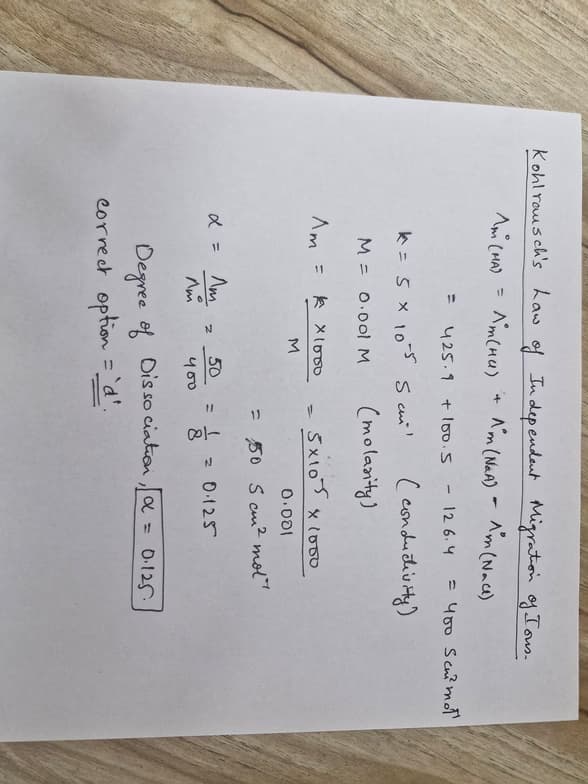 Kohlrausch's Law of Independent Migration of Ions.
Λ°m(HA) = Λ°m(HCl) + Λ°m(NaA) - Λ°m(NaCl)
= 425.9 + 100.5 - 126.4 = 400 S cm² mol⁻¹
k = 5 × 10⁻⁵ S cm⁻¹ (conductivity)
M = 0.001 M (molarity)
Λm = k × 1000 / M = 5×10⁻⁵ × 1000 / 0.001
= 50 S cm² mol⁻¹
α = Λm / Λ°m = 50 / 400 = 1 / 8 = 0.125
Degree of Dissociation, α = 0.125.
correct option = 'd'.